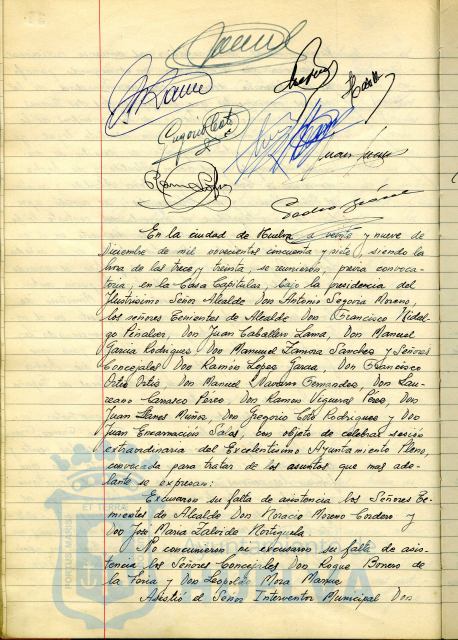 Gregorio Coto
En la ciudad de Huelva a veinte y nueve de
Diciembre de mil novecientos cincuenta y siete, siendo la
hora de las trece y treinta, se reunieron, previa convoca-
toria, en la Casa Capitular, bajo la presidencia del
Ilustrisimo Señor Alcalde Don Antonio Segovia Moreno,
los señores Tenientes de Alcalde Don Francisco Hidal-
go Peñalver, Don Juan Caballero Lama, Don Manuel
Garcia Rodriguez Don Manuel Zamora Sanchez y Señores
Concejales Don Ramon Lopez Garcia, Don Francisco
Ortiz Ortiz, Don Manuel Navarro Fernandez, Don Lau-
reano Carrasco Perez, Don Ramon Vigueras Perez, Don
Juan Llanes Muñoz, Don Gregorio Coto Rodriguez y Don
Juan Encarnación Salas, con objeto de celebrar sesión
extraordinaria del Excelentisimo Ayuntamiento Pleno,
convocada para tratar de los asuntos que mas ade-
lante se expresan:
Excusaron su falta de asistencia los Señores Te-
nientes de Alcalde Don Horacio Moreno Cordero y
Don José Maria
No concurrieron ni excusaron su falta de asis-
tencia los Señores Concejales Don Roque
de la y Don Leopoldo Mora
Asistió el Señor Interventor Municipal Don